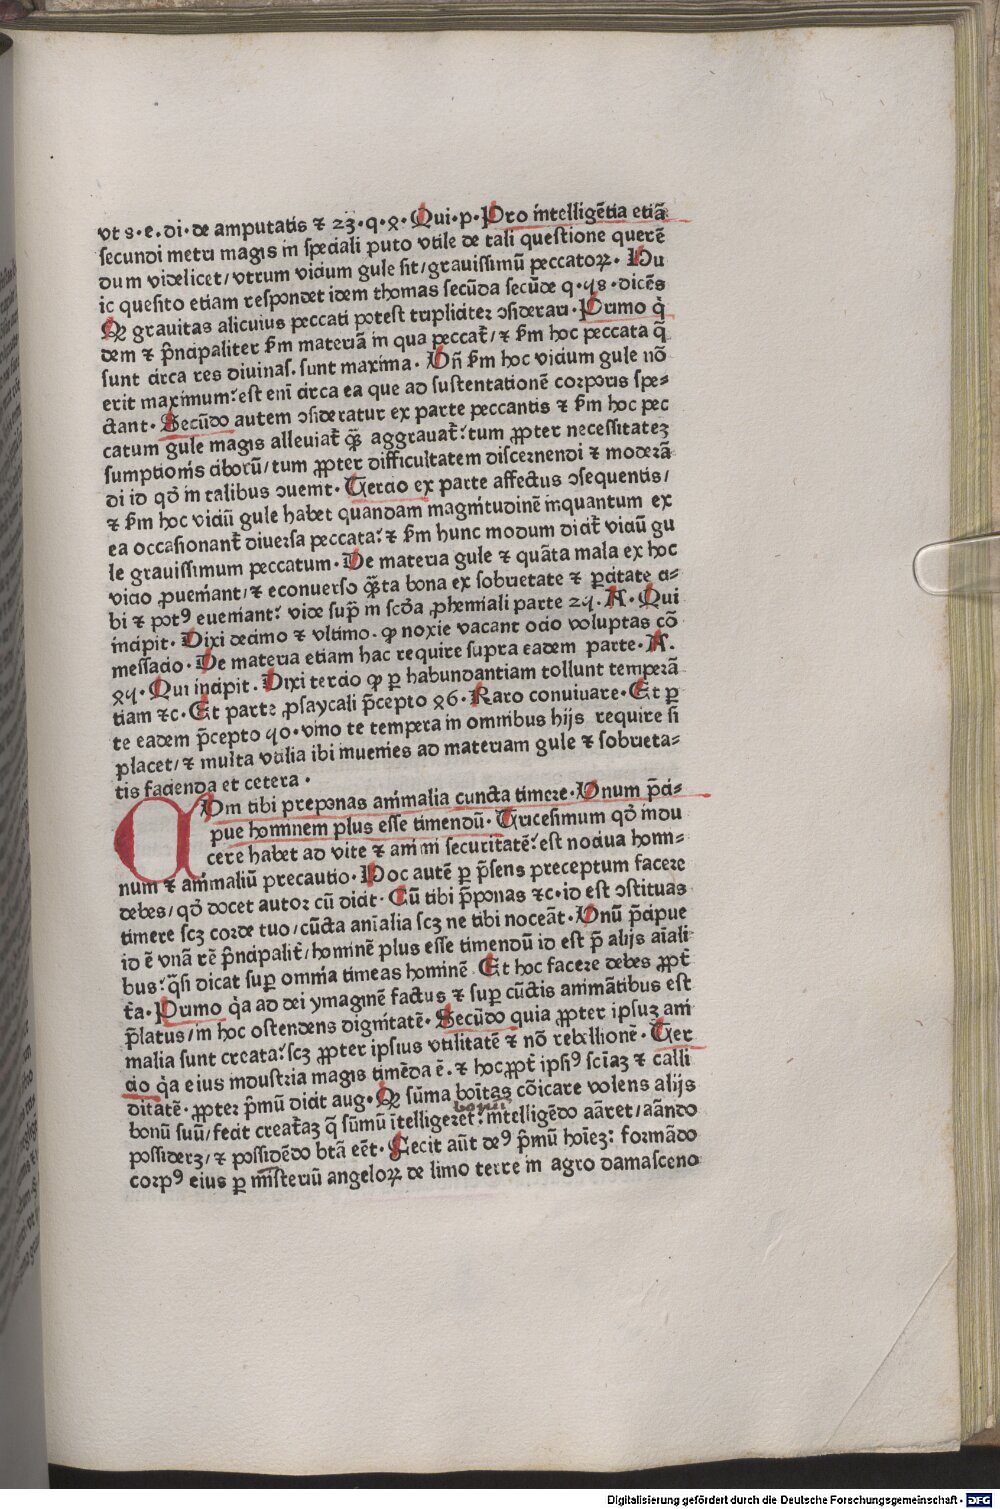 vt s·e·di·de amputatis ⁊ 23·q·8·Qui·p·Pro intelligẽtia etiã
secundi metri magis in speciali puto vtile de tali questione querẽ
dum videlicet/vtrum vicium gule sit/grauissimũ peccatoꝝ·Hu
ic quesito etiam respondet idem thomas secũda secũde q·148·dicẽs
Qꝛ grauitas alicuius peccati potest tripliciter ↄsiderari·Primo q̇
dem ⁊ p̃ncipaliter ẜm materiã in qua peccat̃/⁊ ẜm hoc peccata q̃
sunt circa res diuinas·sunt maxima·Vñ ẜm hoc vicium gule nõ
erit maximum:est eni circa ea que ad sustentationẽ corporis spe-
ctant·Secũdo autem ↄsideratur ex parte peccantis ⁊ ẜm hoc pec
catum gule magis alleuiat̃ q̃ȝ aggrauat̃:tum ꝓpter necessitateȝ
sumptionis ciborũ/tum ꝓpter difficultatem discernendi ⁊ moderã
di id qd̃ in talibus ↄuenit·Tercio ex parte affectus ↄsequentis/
⁊ ẜm hoc viciũ gule habet quandam magnitudinẽ inquantum ex
ea occasionant̃ diuersa peccata:⁊ ẜm hunc modum dicit̃ viciũ gu
le grauissimum peccatum·De materia gule ⁊ quãta mala ex hoc
vicio ꝓueniant/⁊ econuerso q̃ȝta bona ex sobrietate ⁊ ꝑcitate ci-
bi ⁊ potꝰ eueniant:vide supͣ in scd̃a ꝓhemiali parte 24·A·Qui
incipit·Dixi decimo ⁊ vltimo·ꝙ noxie vacant ocio voluptas cõ
messacio·De materia etiam hac require supra eadem parte·A·
84·Qui incipit·Dixi tercio ꝙ ꝑ habundantiam tollunt temperã
tiam ⁊c·Et parte ꝓsaycali p̃cepto 86·Raro conuiuare·Et ꝑ
te eadem p̃cepto 40·vino te tempera in omnibus hijs require si
placet/⁊ multa vtilia ibi inuenies ad materiam gule ⁊ sobrieta-
tis facienda et cetera·
CVm tibi preponas animalia cuncta timere·Vnum p̃ci-
pue hominem plus esse timendũ·Tricesimum qd̃ indu
cere habet ad vite ⁊ animi securitatẽ:est nociua homi-
num ⁊ animaliũ precautio·Hoc autẽ ꝑ p̃sens preceptum facere
debes/qd̃ docet autor cũ dicit·Cũ tibi p̃ponas ⁊c·id est ↄstituas
timere scȝ corde tuo/cũcta ani̅alia scȝ ne tibi noceãt·Vnũ p̃cipue
id ẽ vnã rẽ p̃ncipalit̃/hominẽ plus esse timendũ id est p̃ alijs ai̅ali
bus:q̃si dicat supͣ omnia timeas hominẽ·Et hoc facere debes ꝓpt̃
t̃a·Primo q̇a ad dei ymaginẽ factus ⁊ supͣ cũctis animãtibus est
p̃latus/in hoc ostendens dignitatẽ·Secũdo quia ꝓpter ipsuȝ ani
malia sunt creata:scȝ ꝓpter ipsius vtilitatẽ ⁊ nõ rebellionẽ·Ter
cio q̇a eius industria magis timẽda ẽ·⁊ hoc ꝓpt̃ ipsiꝰ sci̅aȝ ⁊ calli
ditatẽ·ꝓpter p̃mũ dicit aug·Qꝛ sũma boi̅tas cõicare volens alijs
bonũ suũ/fecit creat̃aȝ q̃ sũmũ bonũ i̅telligeret:intelligẽdo aãret/aãndo
possideret/⁊ possidẽdo bt̃ã eẽt·Fecit aũt deꝰ p̃mũ hoi̅eȝ:formãdo
corpꝰ eius ꝑ misteriũ angeloꝝ de limo terre in agro damasceno
Digitalisierung gefördert durch die Deutsche Forschungsgemeinschaft · DFG